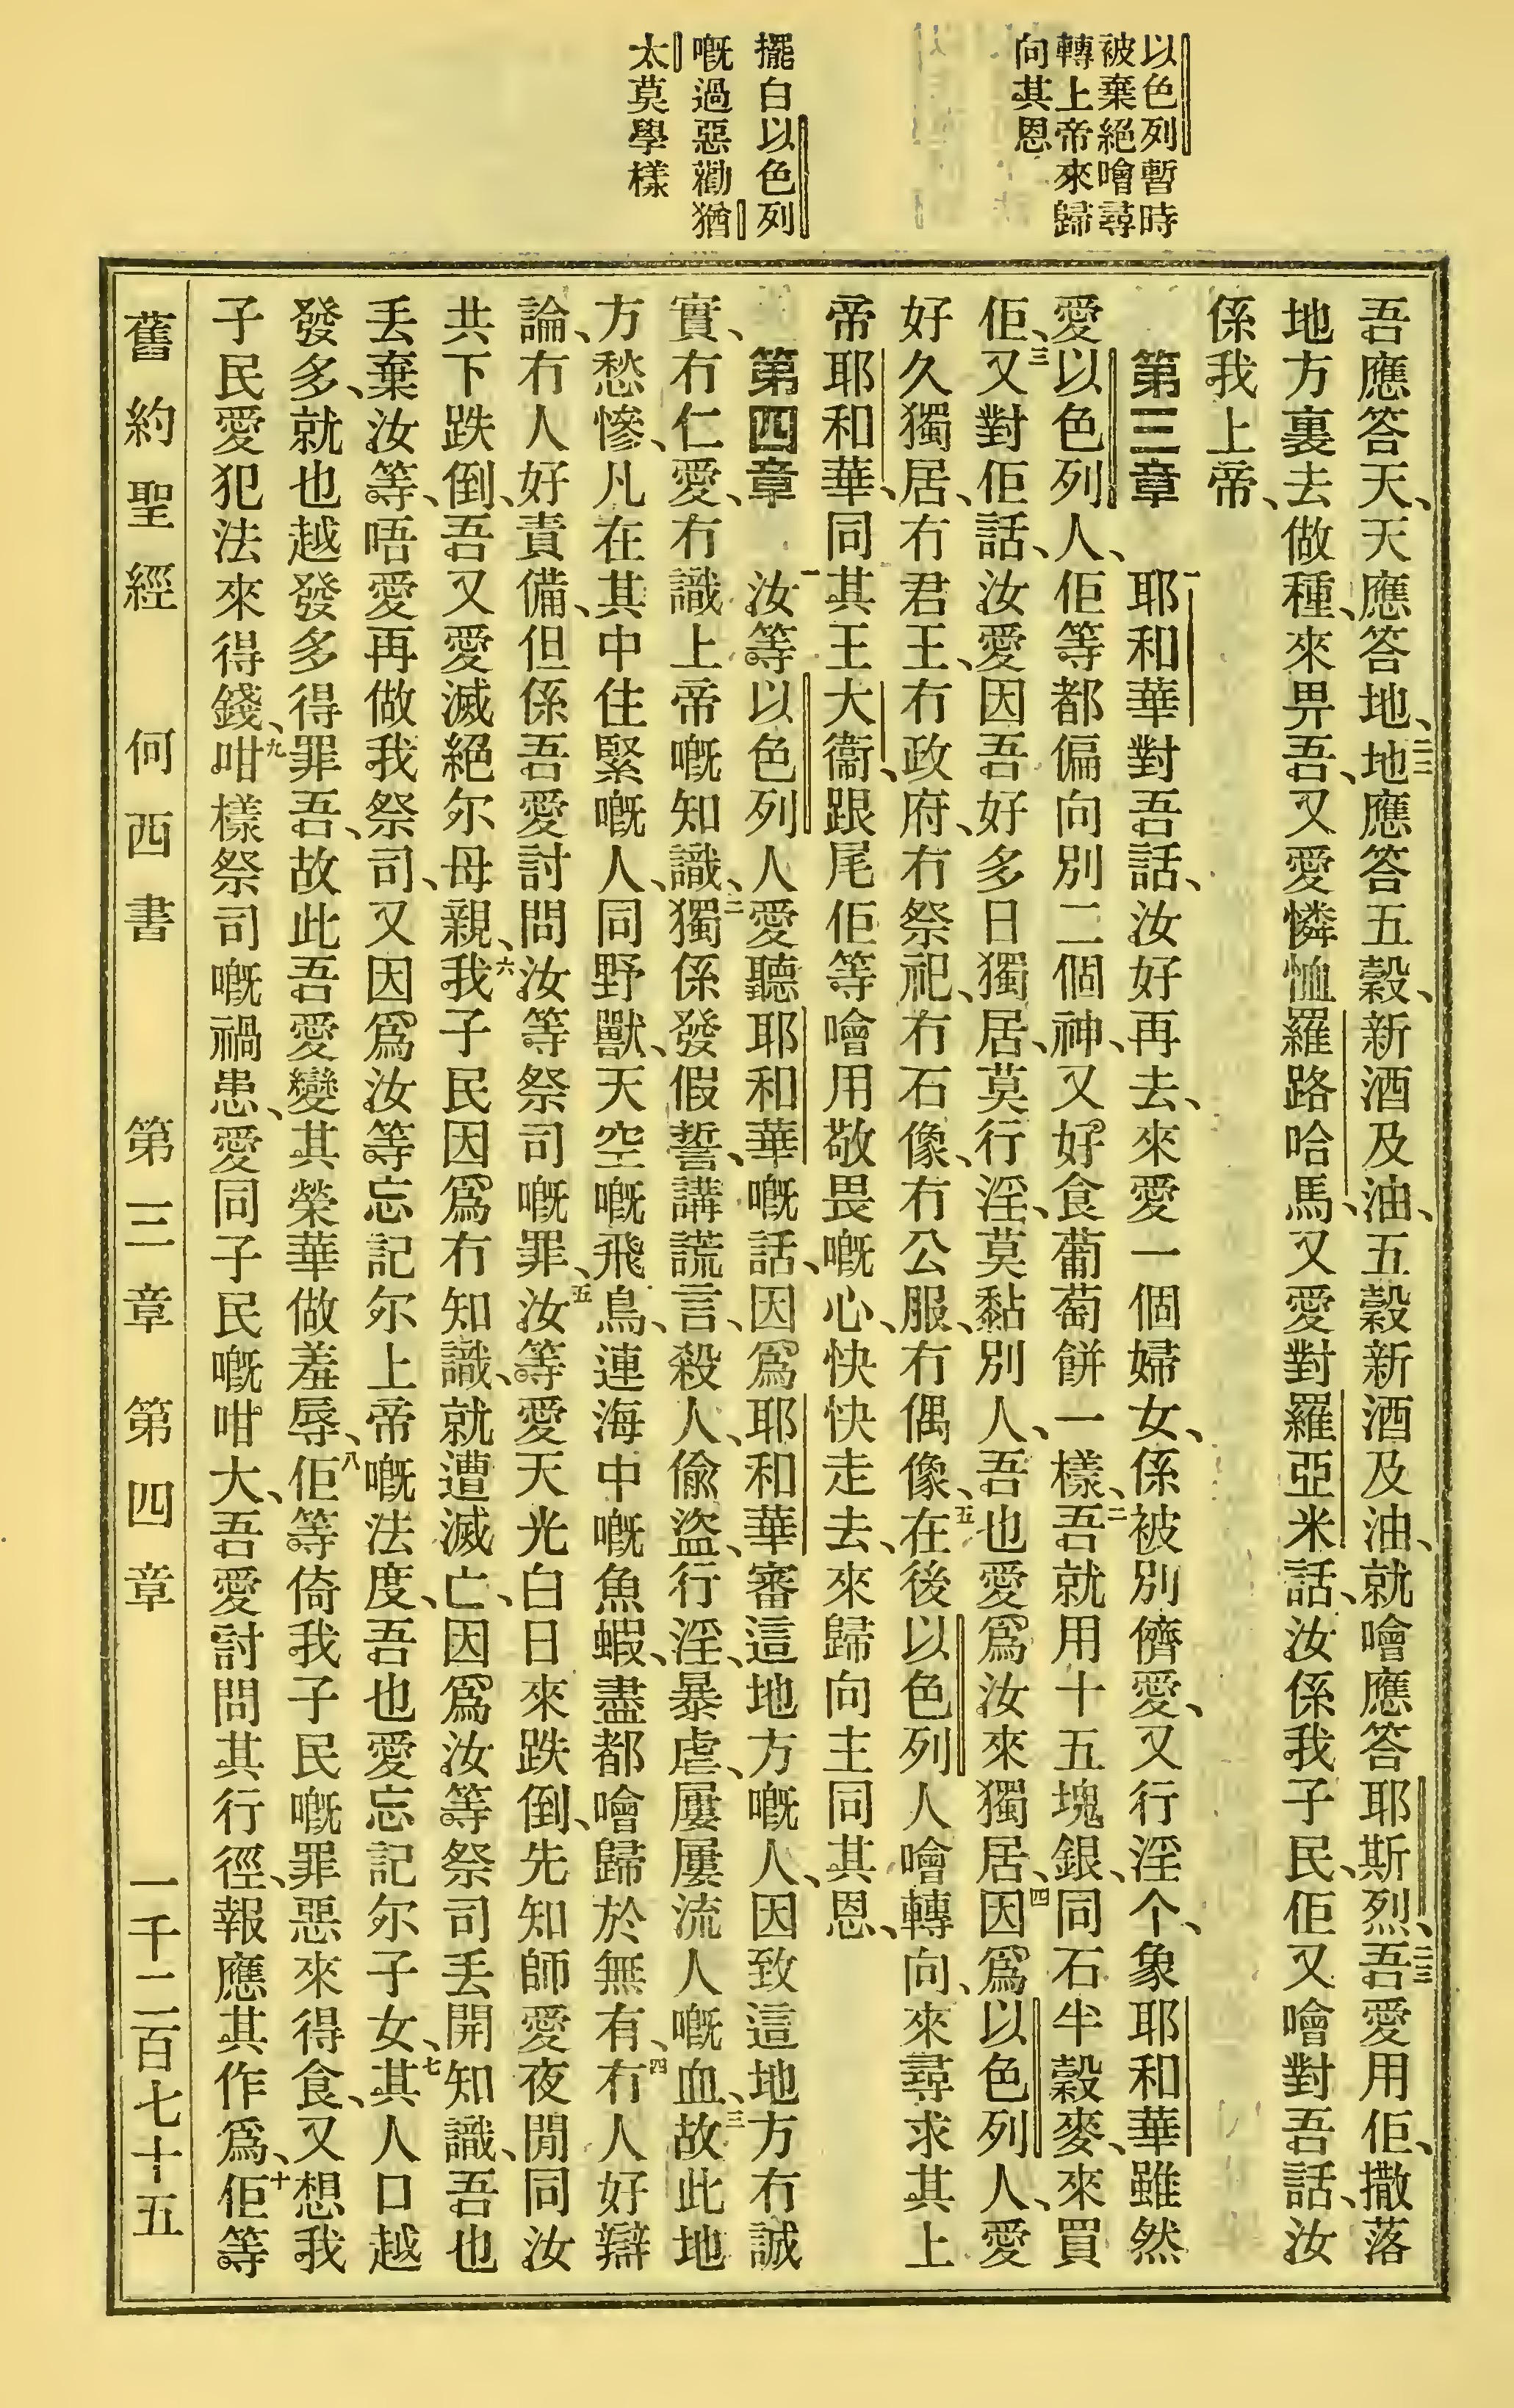 以色列暫時
被棄絕噲尋
轉上帝來歸
向其恩
擺白以色列
嘅過惡勸猶
太莫學樣
吾應答天、天應答地、二二地應答五穀、新酒及油、五穀新酒及油、就噲應答耶斯烈、二三吾愛用佢、撒落
地方裏去做種、來畀吾、又愛憐恤羅路哈馬、又愛對羅亞米話、汝係我子民、佢又噲對吾話、汝
係我上帝、
第三章 一耶和華對吾話、汝好再去、來愛一個婦女、係被別儕愛、又行淫个、象耶和華雖然
愛以色列人、佢等都偏向別二個神、又好食葡萄餅一樣、二吾就用十五塊銀、同石半穀麥、來買
佢、三又對佢話、汝愛因吾好多日獨居、莫行淫、莫黏別人、吾也愛爲汝來獨居、四因爲以色列人、愛
好久獨居、冇君王、冇政府、冇祭祀、冇石像、冇公服、冇偶像、五在後以色列人噲轉向、來尋求其上
帝耶和華、同其王大衞、跟尾佢等噲用敬畏嘅心、快快走去、來歸向主同其恩、
第四章 一汝等以色列人愛聽耶和華嘅話、因爲耶和華審這地方嘅人、因致這地方冇誠
實、冇仁愛、冇識上帝嘅知識、二獨係發假誓、講謊言、殺人、偸盜、行淫、暴虐、屢屢流人嘅血、三故此地
方愁慘、凡在其中住緊嘅人、同野獸、天空嘅飛鳥、連海中嘅魚蝦、盡都噲歸於無有、四冇人好辯
論、冇人好責備、但係吾愛討問汝等祭司嘅罪、五汝等愛天光白日來跌倒、先知師愛夜閒同汝
共下跌倒、吾又愛滅絕尔母親、六我子民因爲冇知識、就遭滅亡、因爲汝等祭司丟開知識、吾也
丟棄汝等、唔愛再做我祭司、又因爲汝等忘記尔上帝嘅法度、吾也愛忘記尔子女、七其人口越
發多、就也越發多得罪吾、故此吾愛變其榮華做羞辱、八佢等倚我子民嘅罪惡來得食、又想我
子民愛犯法來得錢、九咁樣祭司嘅禍患、愛同子民嘅咁大、吾愛討問其行徑、報應其作爲、十佢等
舊約聖經 何西書 第三章 第四章 一千二百七十五